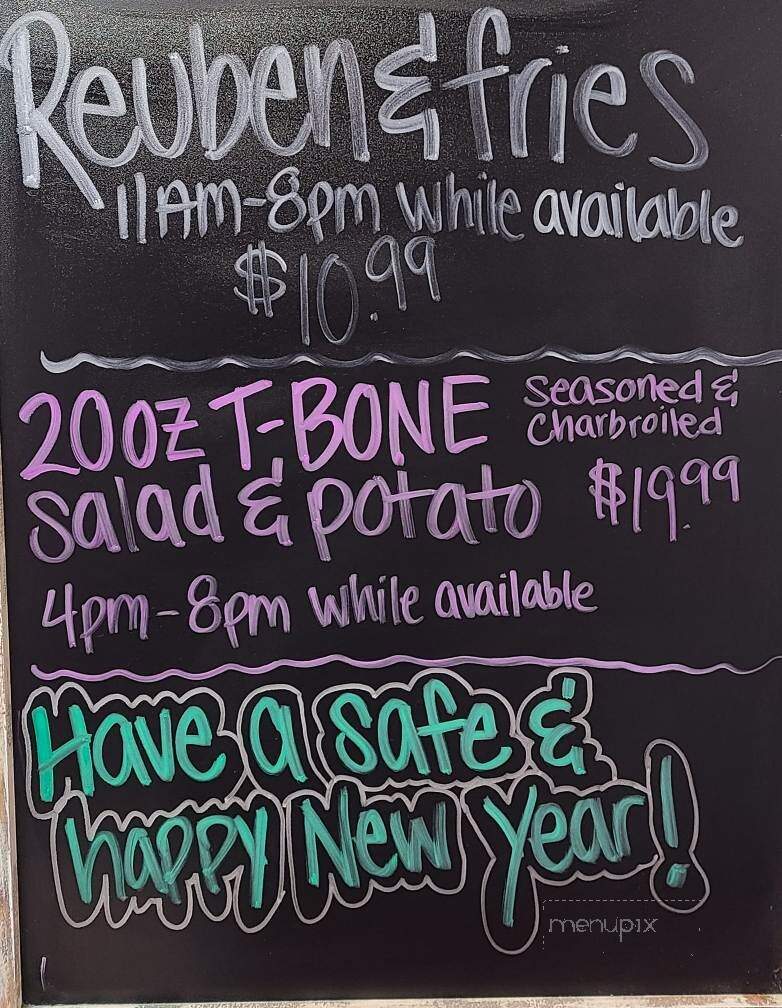 Reuben & fries
11AM-8pm while available
$10.99
20oz T-BONE
Seasoned &
Charbroiled
salad & potato
$19.99
4pm-8pm while available
Have a safe &
happy New Year!
menupix